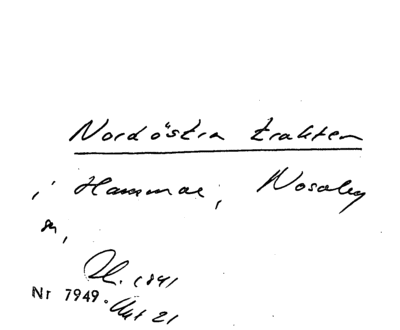 Nordöstra trakten
i Hammar, Nosaby
sn,
1841
Nr 7949. Akt 21